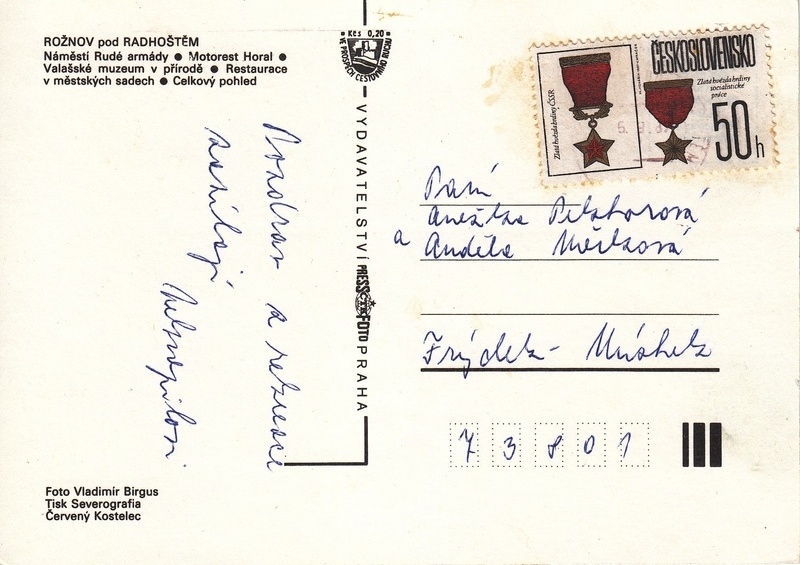 ROŽNOV pod RADHOŠTĚM
Náměstí Rudé armády ● Motorest Horal ●
Valašské muzeum v přírodě ● Restaurace
v městských sadech ● Celkový pohled
Kčs 0,20
VE PROSPĚCH CESTOVNÍHO RUCHU
VYDAVATELSTVÍ PRESSFOTO PRAHA
ČESKOSLOVENSKO
Zlatá hvězda hrdiny ČSSR
Zlatá hvězda hrdiny
socialistické
práce
50 h
Pozdrav z rekreace
zasílají
Paní
Anežka
a Anděla
Frýdek - Místek
73801
Foto Vladimír Birgus
Tisk Severografia
Červený Kostelec